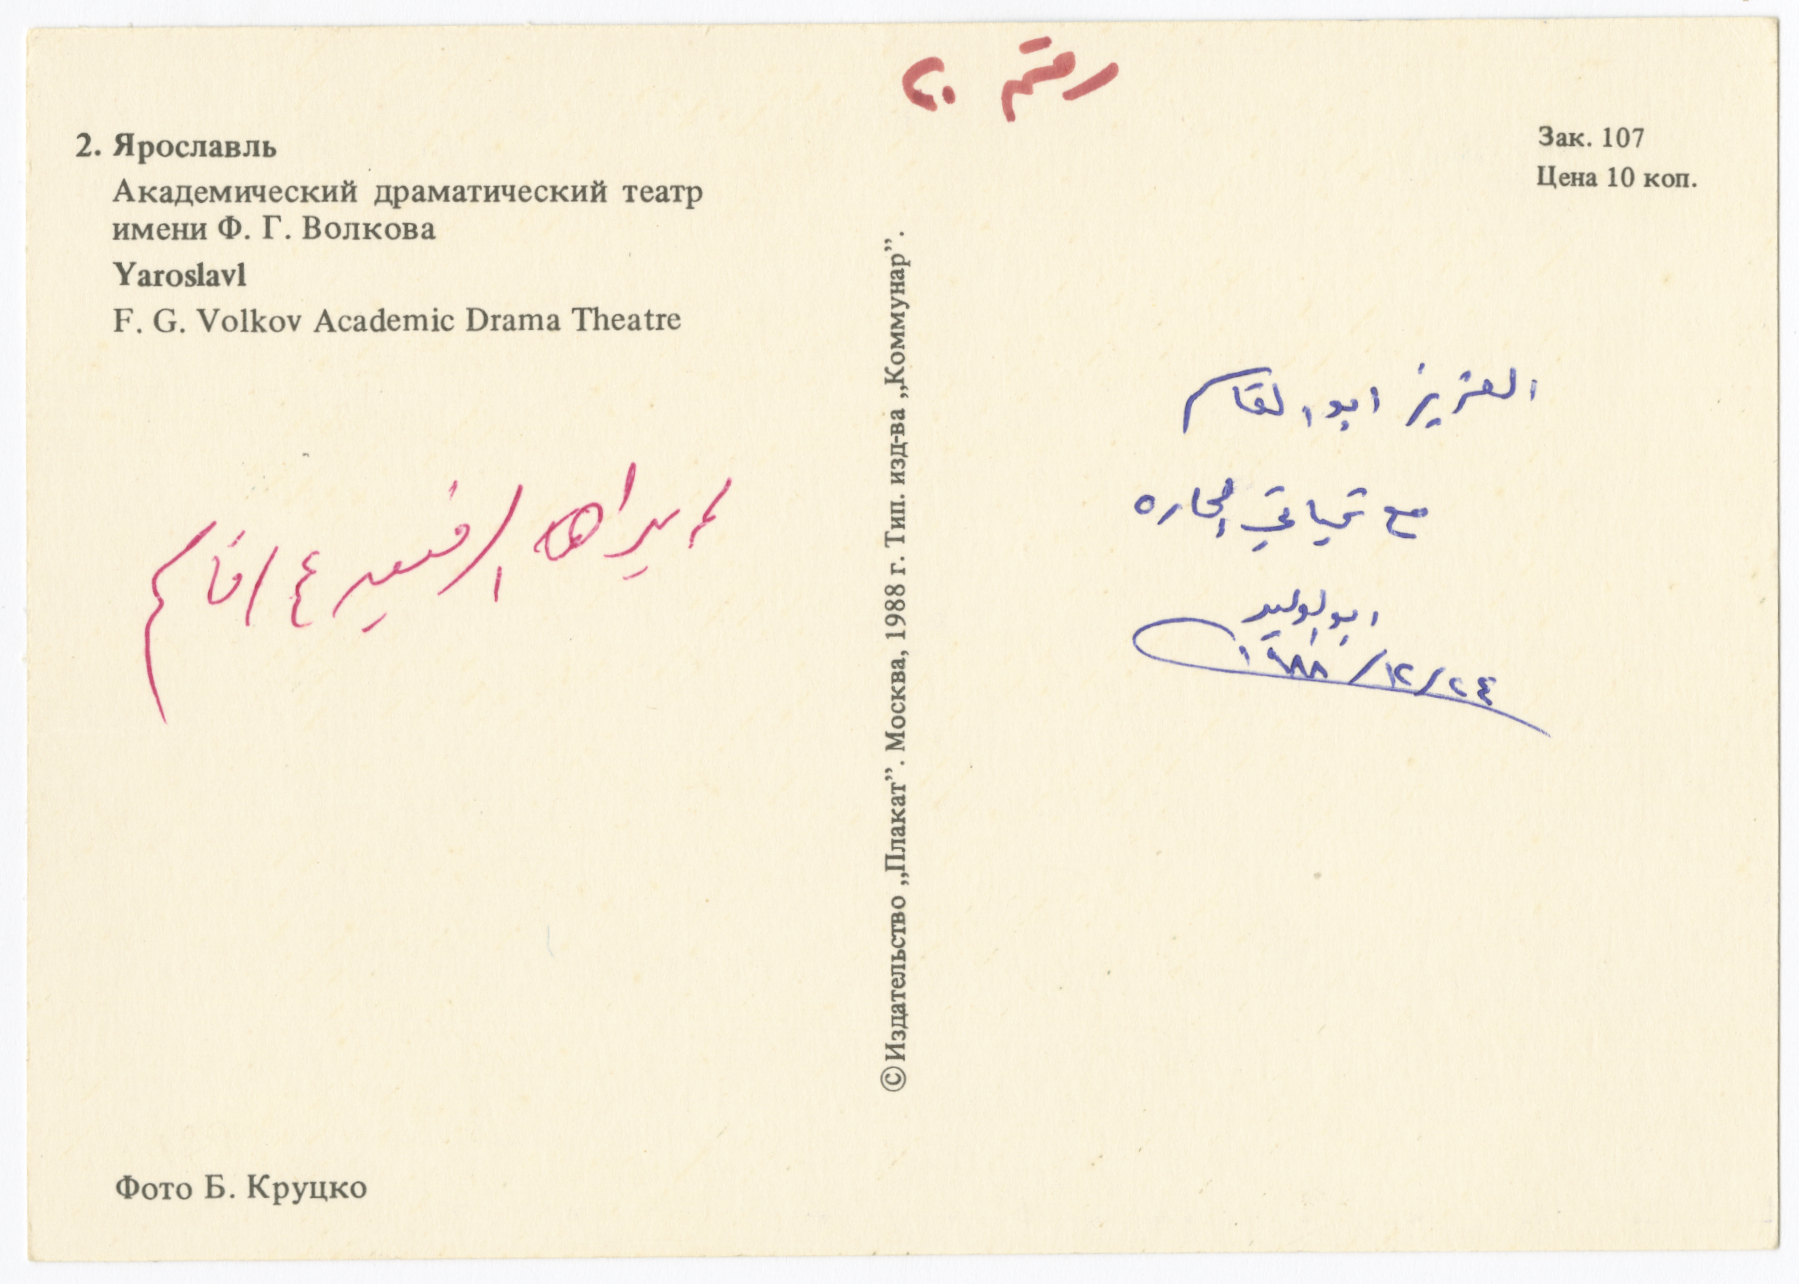 رقم ٢٠
2. Ярославль
Академический драматический театр
имени Ф. Г. Волкова
Yaroslavl
F. G. Volkov Academic Drama Theatre
Зак. 107
Цена 10 коп.
© Издательство „Плакат”. Москва, 1988 г. Тип. изд-ва „Коммунар”.
العزيز ابو القاسم
مع تحياتي الحاره
ابو الوليد
٢٤/١٢/١٩٨٨
Фото Б. Круцко